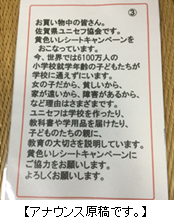 ③
お買い物中の皆さん。
佐賀県ユニセフ協会です。
黄色いレシートキャンペーンを
おこなっています。
今、世界では6100万人の
小学校就学年齢の子どもたちが
学校に通えずにいます。
女の子だから、貧しいから、
家が遠いから、障害があるから、
など理由はさまざまです。
ユニセフは学校を作ったり、
教科書や学用品を届けたり、
子どものたちの親に、
教育の大切さを説明しています。
黄色いレシートキャンペーンに
ご協力をお願いします。
よろしくお願いします。
【アナウンス原稿です。】